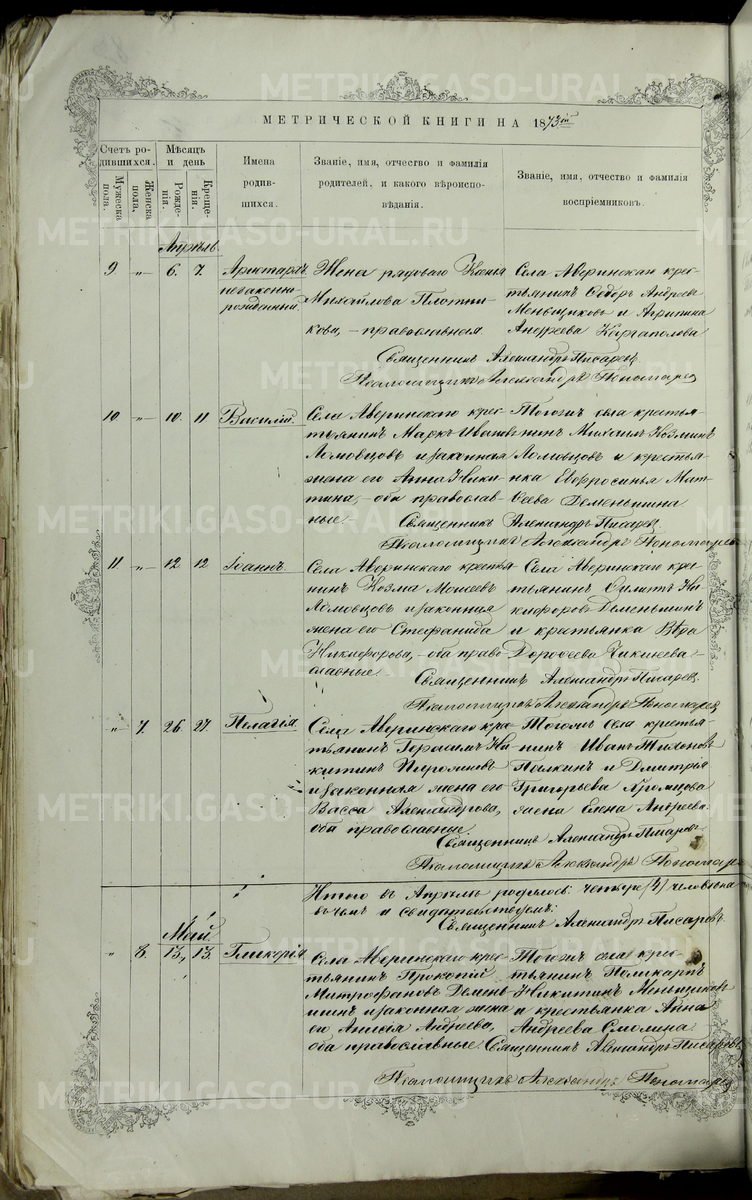 МЕТРИЧЕСКОЙ КНИГИ НА 1873ій
Счетъ родившихся.
Мѣсяцъ и день
Имена родившихся.
Званіе, имя, отчество и фамилія родителей, и какого вѣроисповѣданія.
Званіе, имя, отчество и фамилія воспріемниковъ.
Мужеска пола.
Женска пола.
Рожденія.
Крещенія.
Апрѣль
9 „ 6. 7.
незаконнорожденный
Жена рядоваго Ксенія
Михайлова Плотни-
кова, – православная
Села Аверинскаго крес-
тьянинъ Ѳедоръ Андреевъ
Меньщиковъ и Агрипина
Андреева Каргаполова
Священникъ Александръ Писаревъ
Псаломщикъ Александръ Пономарев
10 „ 10. 11. Василій.
Села Аверинскаго крес-
тьянинъ Маркъ Ивановъ
Ломовцовъ и законная
жена его Анна Ники-
тина, – оба православ-
ные.
Тогожъ села крестья-
нинъ Михаилъ Козминъ
Ломовцовъ и крестья-
нка Евфросинья Мат-
ѳеева Деменьшина
Священникъ Александръ Писарев
Псаломщикъ Александръ Пономарев
11 „ 12 12 Іоаннъ.
Села Аверинскаго крестья-
нинъ Козма Моисеевъ
Ломовцовъ и законная
жена его Стефанида
Никифорова, – оба право-
славные
Села Аверинскаго крес-
тьянинъ Филитъ Ни-
кифоровъ Деменьшинъ
и крестьянка Вѣра
Дороѳеева Чикинева
Священникъ Александръ Писарев
Псаломщикъ Александръ Пономарев
„ 7. 26. 27. Пелагія.
Села Аверинскаго крес-
тьянинъ Герасимъ Ни-
китинъ
и законная жена его
Васса Александрова,
оба православные.
Тогожъ села крестья-
нинъ Иванъ Тихоновъ
Палкинъ и Дмитрія
Григорьева
жена Елена Андреева.
Священникъ Александръ Писарев
Псаломщикъ Александръ Пономарев
Итого въ Апрѣлѣ родилось: четыре (4) человѣка
въ чемъ и свидѣтельствуемъ:
Священникъ Александръ Писаревъ
Май.
„ 8. 13, 13. Гликерія
Села Аверинскаго крес-
тьянинъ Прокопій
Митрофановъ Демень-
шинъ и законная жена
его Анисья Андреева,
оба православные
Тогожъ села крес-
тьянинъ Поликарпъ
Никитинъ Меньщиков
и крестьянка Анна
Андреева Смолина
Священникъ Александръ Писаревъ
Псаломщикъ Александръ Пономарев
METRIKI.GASO-URAL.RU